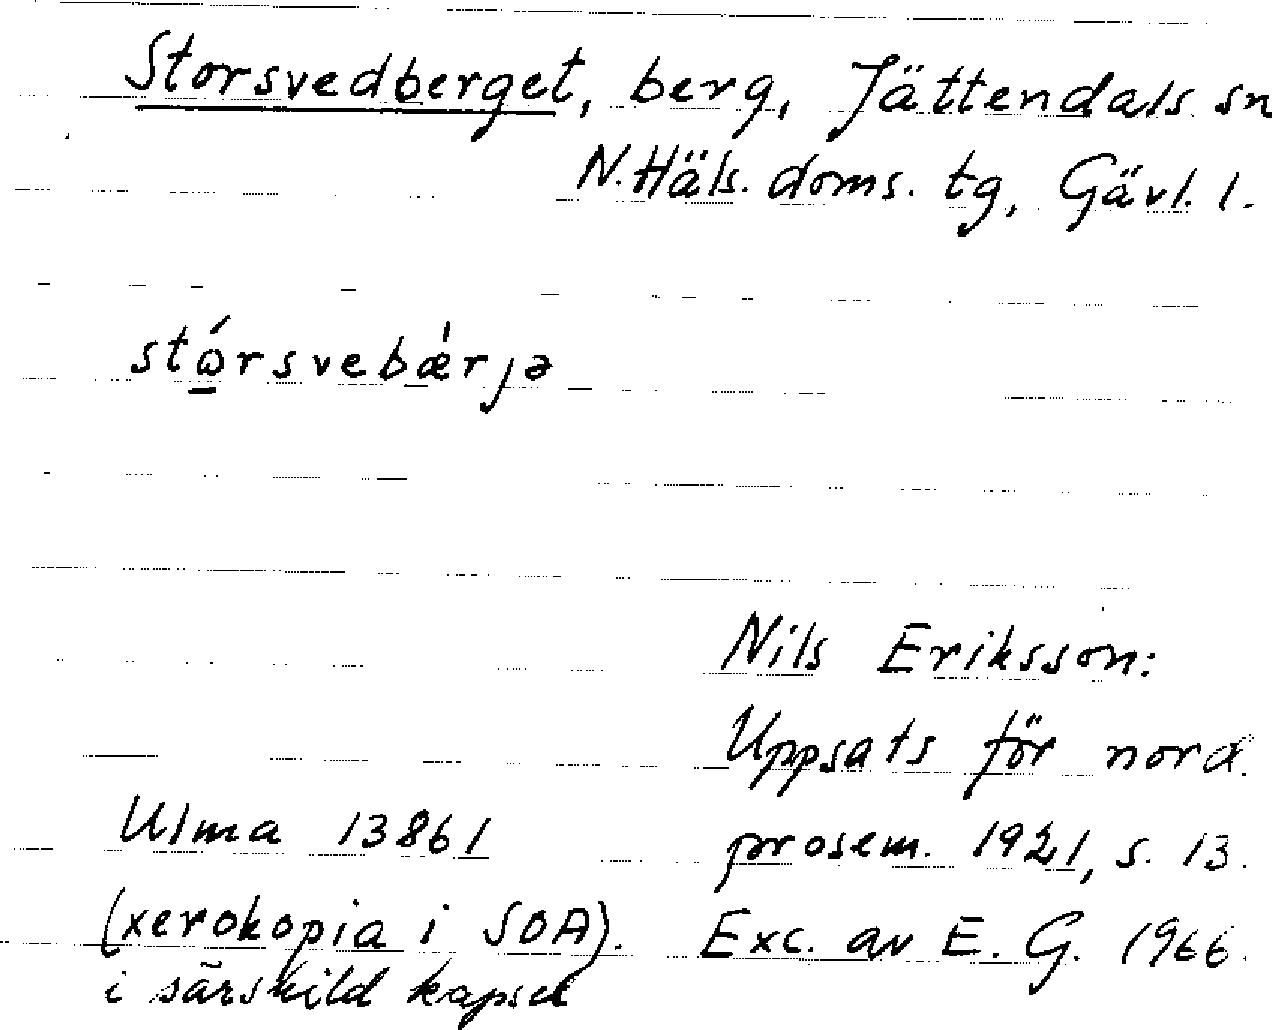 Storsvedberget, berg, Jättendals sn
N. Häls. doms. tg, Gävl. l.
stɷ̲́rsvebǽrjə
Nils Eriksson:
Uppsats för nord.
Ulma 13861 prosem. 1921, s. 13.
(xerokopia i SOA). Exc. av E. G. 1966.
i särskild kapsel